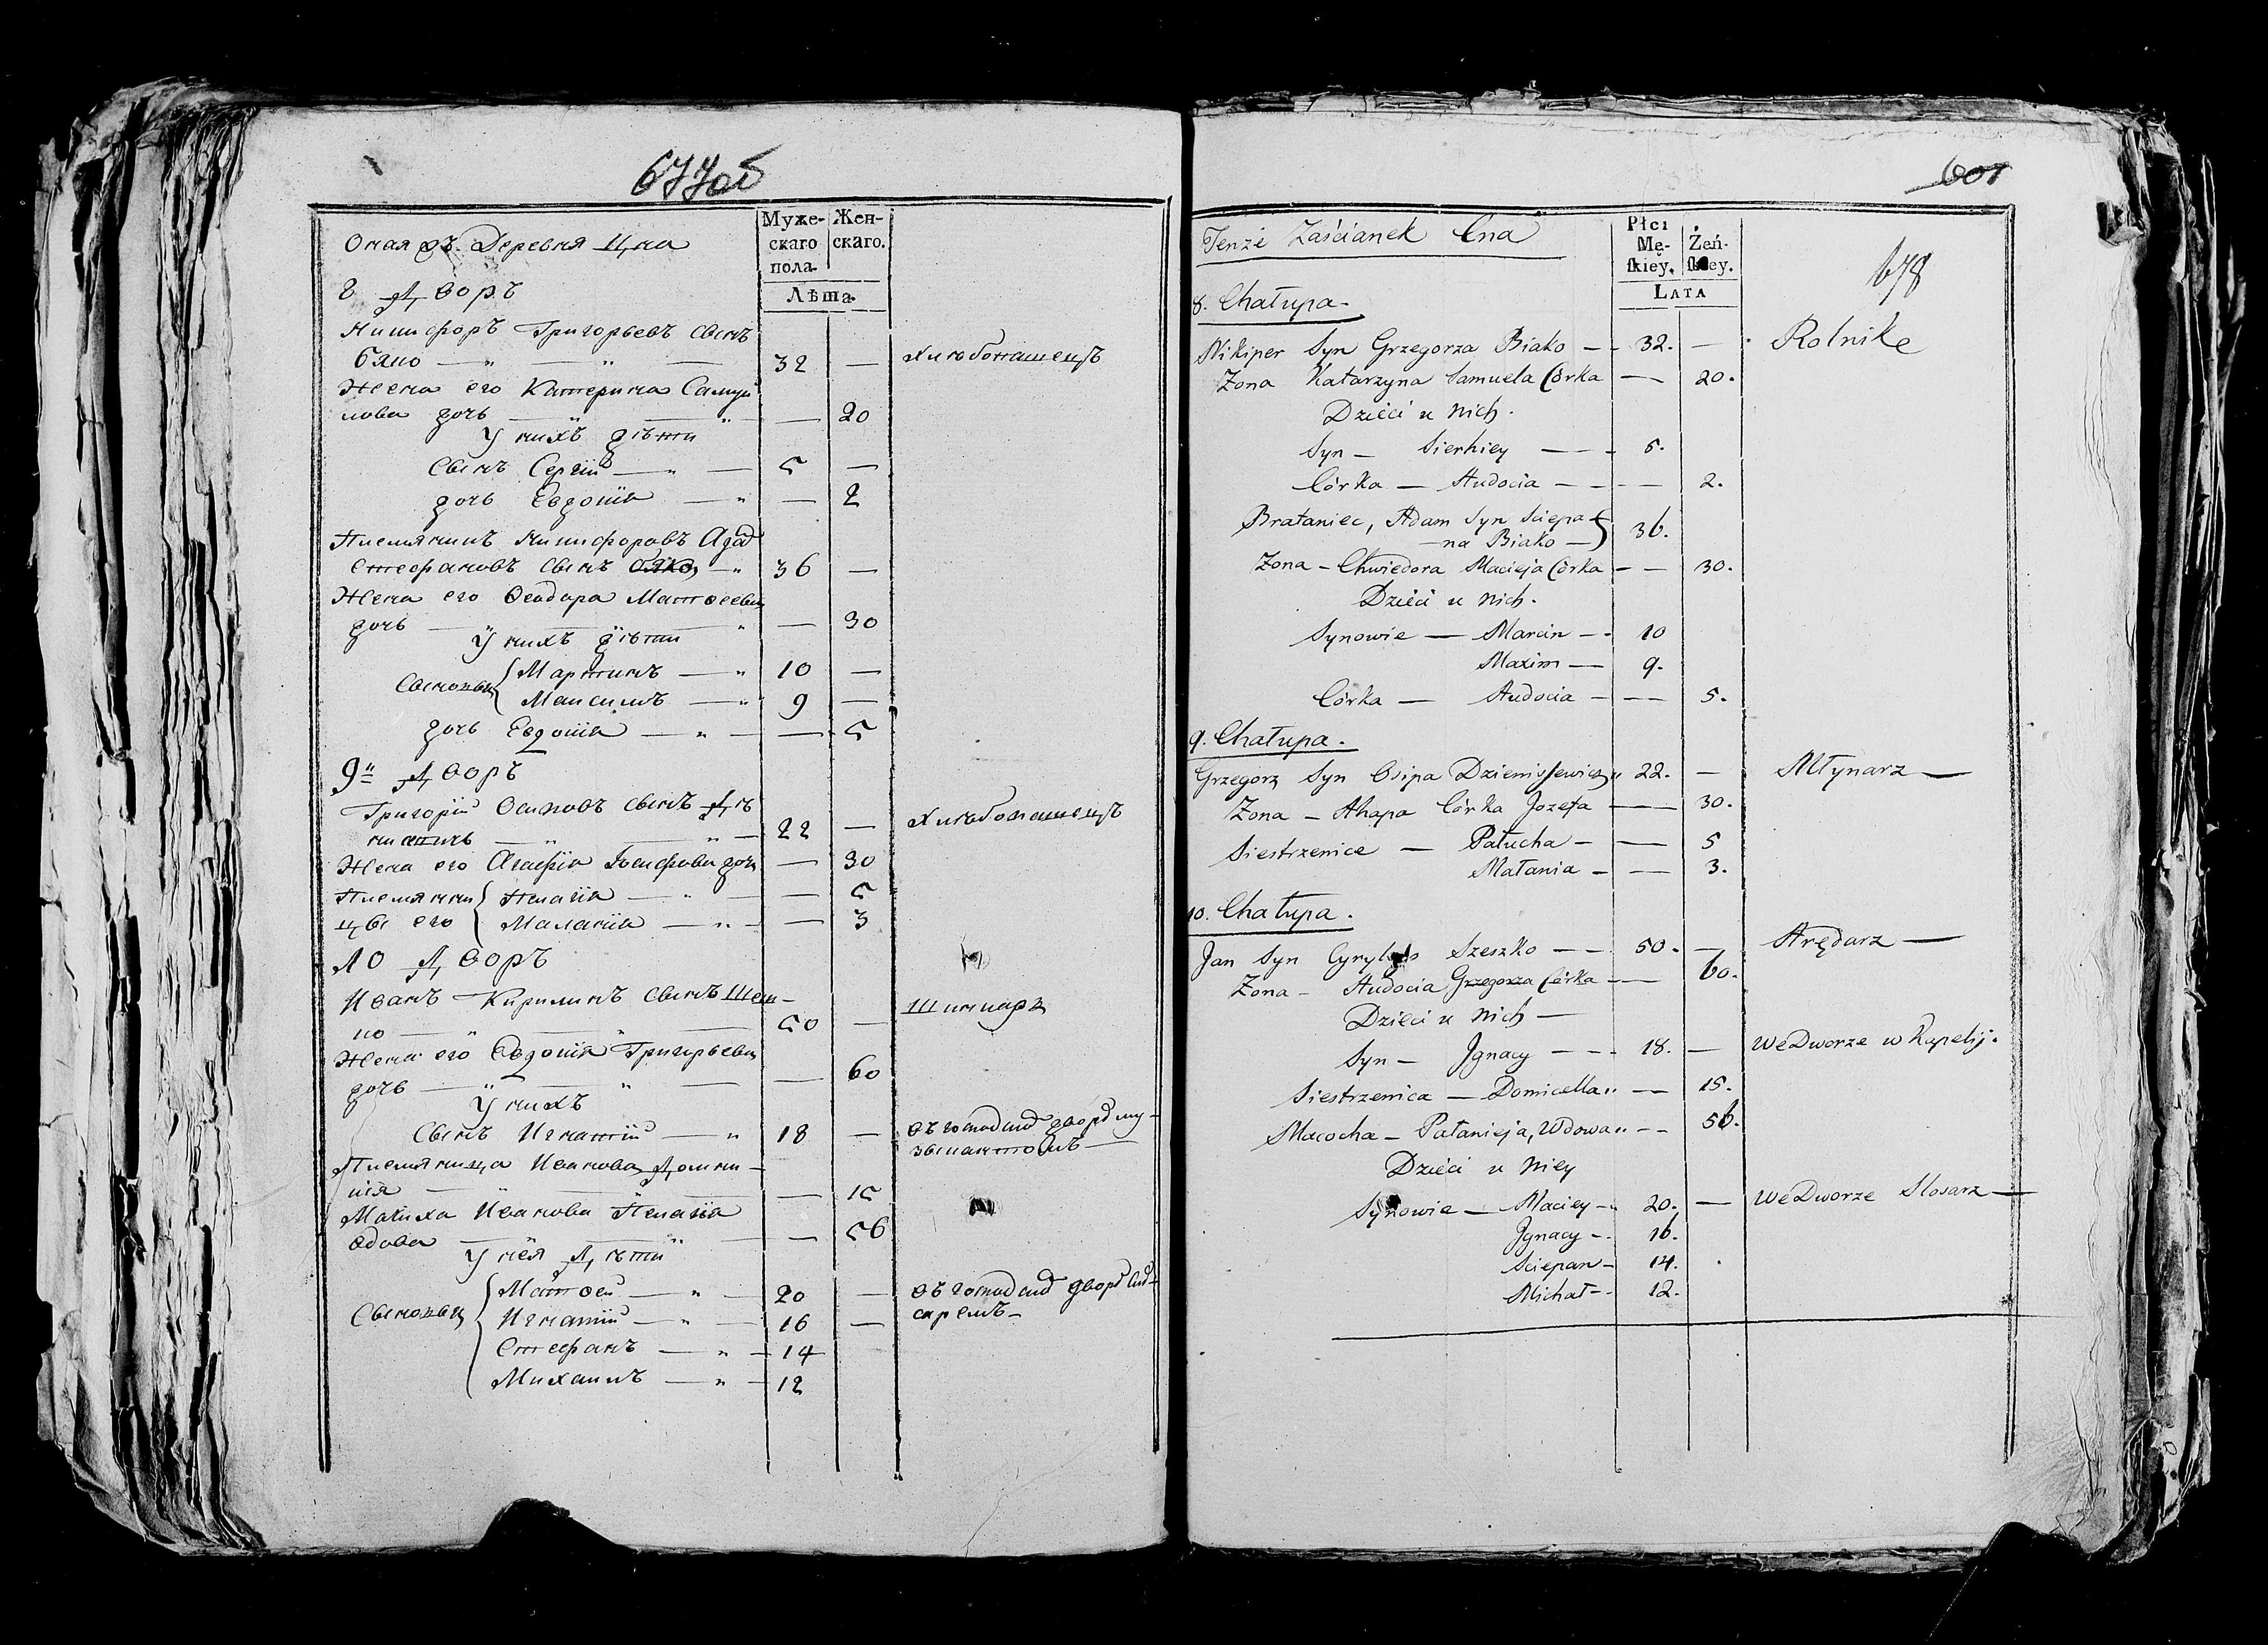 677об
Муже- Жен-
скаго скаго.
пола
Лѣта
Оная жъ Деревня Цна
8 Дворъ
Никифоръ Григорьевъ сынъ
Бяко — " — " — 32 — Хлѣбопашецъ
Жена его Катерина Самуй
лова дочь — " — " — 20
У нихъ дѣти
Сынъ Сергій — " — 5 —
дочь Евдокія — " — 2
Племянникъ Никифоровъ Адам
Стефановъ сынъ Бяко — " 36 —
Жена его Феодора Матвеева
дочь — " — " — 30
У нихъ дѣти
Сыновья { Мартинъ — " 10 —
Максимъ — " 9 —
дочь Евдокія — " — 5
9й Дворъ
Григорій Осиповъ сынъ Де
нисевичъ — " — " — 22 — Хлѣбопашецъ
Жена его Агафія Іосифова дочь — 30
Племянни { Пелагія — " — 5
цы его { Маланія — " — 3
10 Дворъ
Иванъ Кирилинъ сынъ Шеш-
ко — " — " — 50 — Шинкарь
Жена его Евдокія Григорьева
дочь — " — " — 60
У нихъ
Сынъ Игнатій — " 18 — въ господск дворѣ му-
зыкантомъ —
Племянница Иванова Домини-
кія — " — 15
Мачиха Иванова Пелагія
вдова — " — 56
У нея Дѣти
Сыновья { Матвей — " 20 — въ господск дворѣ слѣ-
саремъ —
Игнатій — " — 16 —
Стефанъ — " — 14
Михаилъ — " — 12
601
678
Płci
Mę- Żeń-
ſkiéy. ſkiey.
Lata
Tenże Zaścianek Cna
8. Chałupa.
Nikiper Syn Grzegorza Biako — 32. — Rolnik
Żona Katarzyna Samuela Córka — 20.
Dzieci u nich.
Syn — Sierhiey — 5.
Córka — Audocia — 2.
Brataniec, Adam Syn Sciepa-
na Biako — } 36.
Żona — Chwiedora Macieja Córka — 30.
Dzieci u nich.
Synowie — Marcin — 10
Maxim — 9.
Córka — Audocia — 5.
9. Chałupa.
Grzegorz Syn Osipa Dzienisſewicz " 22. — Młynarz —
Żona — Ahapa Córka Jozefa — 30.
Siestrzenice — Pałucha — 5
Małania — 3.
10. Chałupa.
Jan Syn Cyrylego Szeszko — 50. — Arędarz —
Żona — Audocia Grzegorza Córka — 60.
Dzieci u nich —
Syn — Jgnacy — 18. — We Dworze w Kapelij.
Siestrzenica — Domicella " — 15.
Macocha — Pałanieja, Wdowa " — 56.
Dzieci u niey
Synowie — Maciey — 20. — We Dworze Slosarz —
Jgnacy — 16.
Sciepan — 14.
Michał — 12.